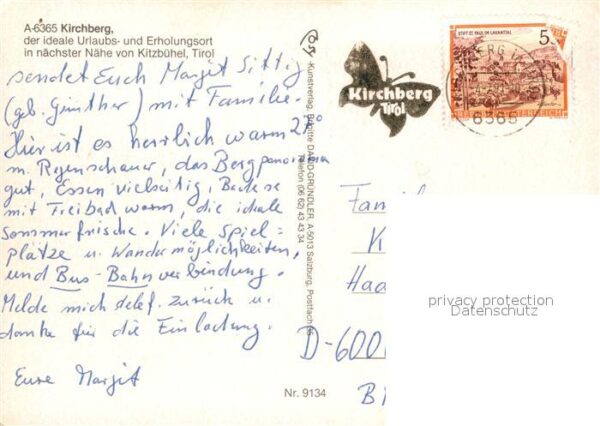 A-6365 Kirchberg,
der ideale Urlaubs- und Erholungsort
in nächster Nähe von Kitzbühel, Tirol
sendet Euch Margit Sittig
(geb. Günther) mit Familie.
Hier ist es herrlich warm 27°
m. Regenschauer, das Bergpanorama
gut, Essen vielseitig,
mit Freibad warm, die ideale
Sommerfrische. Viele Spiel=
plätze u. Wandermöglichkeiten,
und Bus-Bahnverbindung.
Melde mich telef. zurück u.
danke für die Einladung.
Eure Margit
Nr. 9134
Kunstverlag, Brigitte DAVID-GRÜNDLER, A-5013 Salzburg, Postfach
Telefon (06 62) 43 43 34
Kirchberg
Tirol
STIFT ST. PAUL IM LAVANTTAL
5
6365
Fam
K
Haa
D-600
privacy protection
Datenschutz